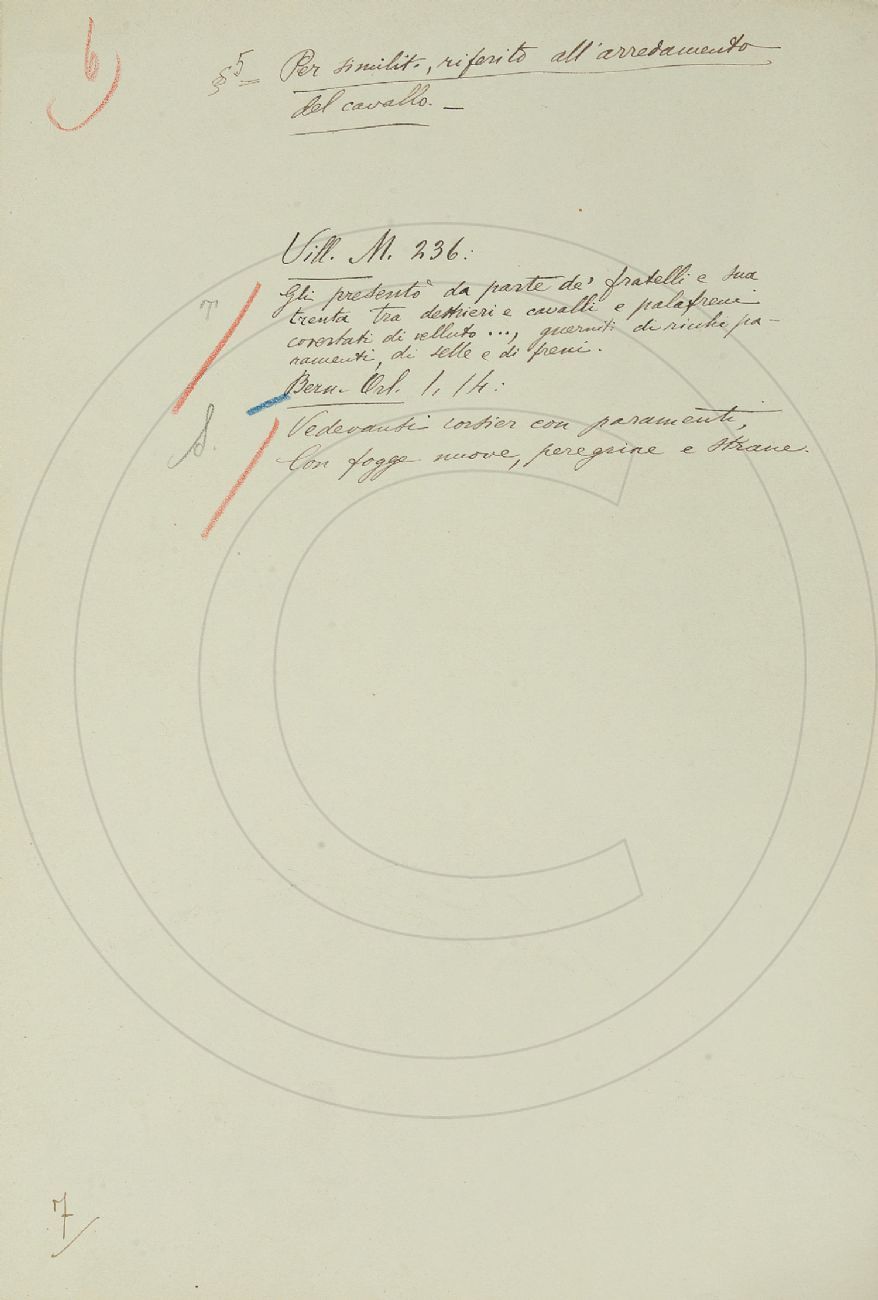 6
§ 5 = Per similit., riferito all'arredamento
del cavallo. —
Vill. M. 236:
Gli presentò da parte de' fratelli e sua
T
trenta tra destrieri e cavalli e palafreni
covertati di velluto ..., guerniti di ricche pa-
ramenti, di selle e di freni.
Bern. Orl. 1, 14:
S.
Vedevansi corsier con paramenti,
Con fogge nuove, peregrine e strane.
7